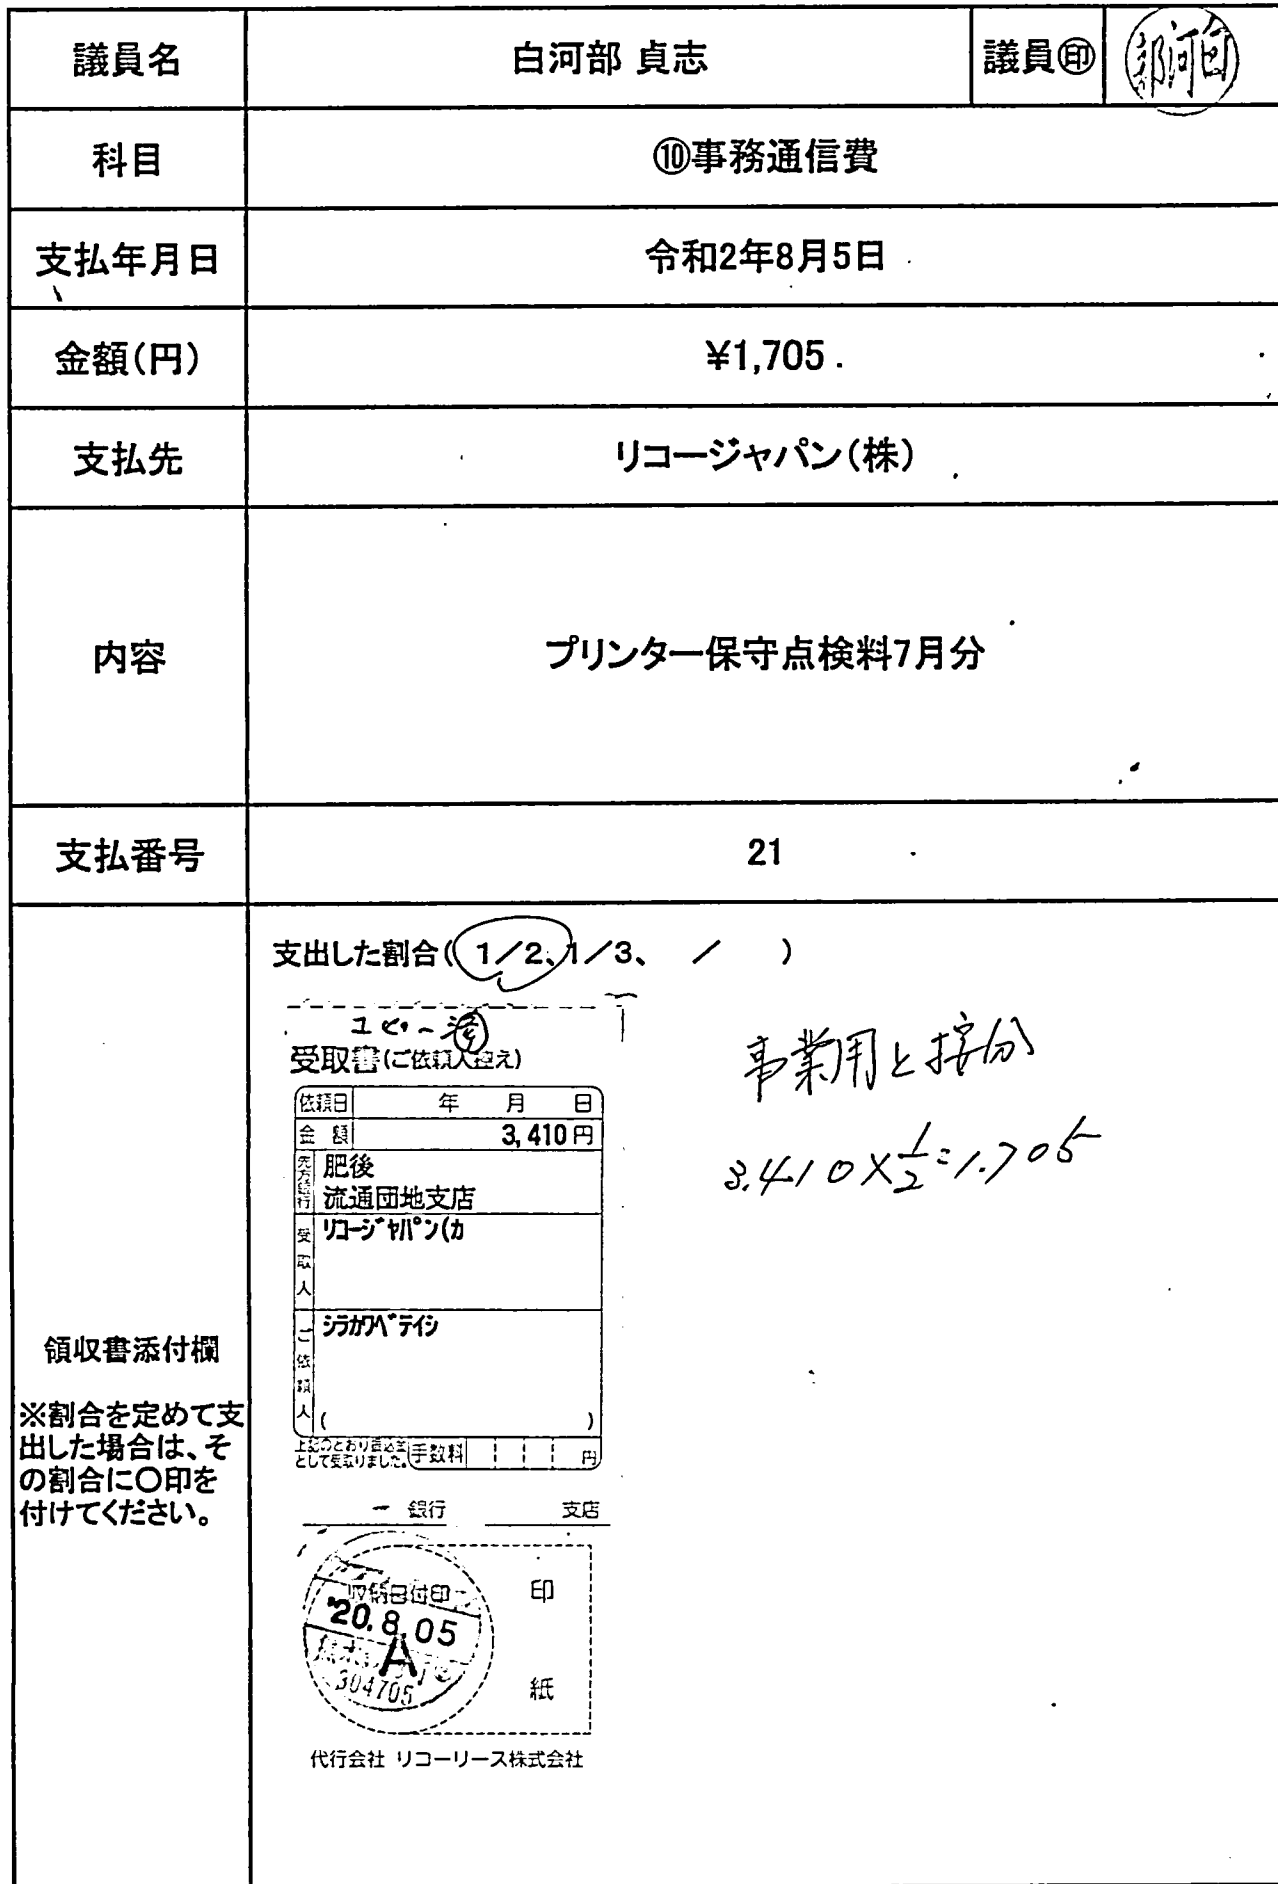 議員名 白河部 貞志 議員㊞ 白河部
科目 ⑩事務通信費
支払年月日 令和2年8月5日
金額(円) ¥1,705
支払先 リコージャパン(株)
内容 プリンター保守点検料7月分
支払番号 21
領収書添付欄
※割合を定めて支
出した場合は、そ
の割合に〇印を
付けてください。
支出した割合( 1/2、1/3、 / )
コピー済
受取書(ご依頼人控え)
依頼日 年 月 日
金額 3,410円
先方銀行 肥後
流通団地支店
受取人 リコージャパン(カ
ご依頼人 シラカワベテイシ
( )
上記のとおり振込金
として受取りました。
手数料 円
銀行 支店
収納日付印
'20.8.05
A
304705
印
紙
代行会社 リコーリース株式会社
事業用と按分
3.410×1/2=1.705